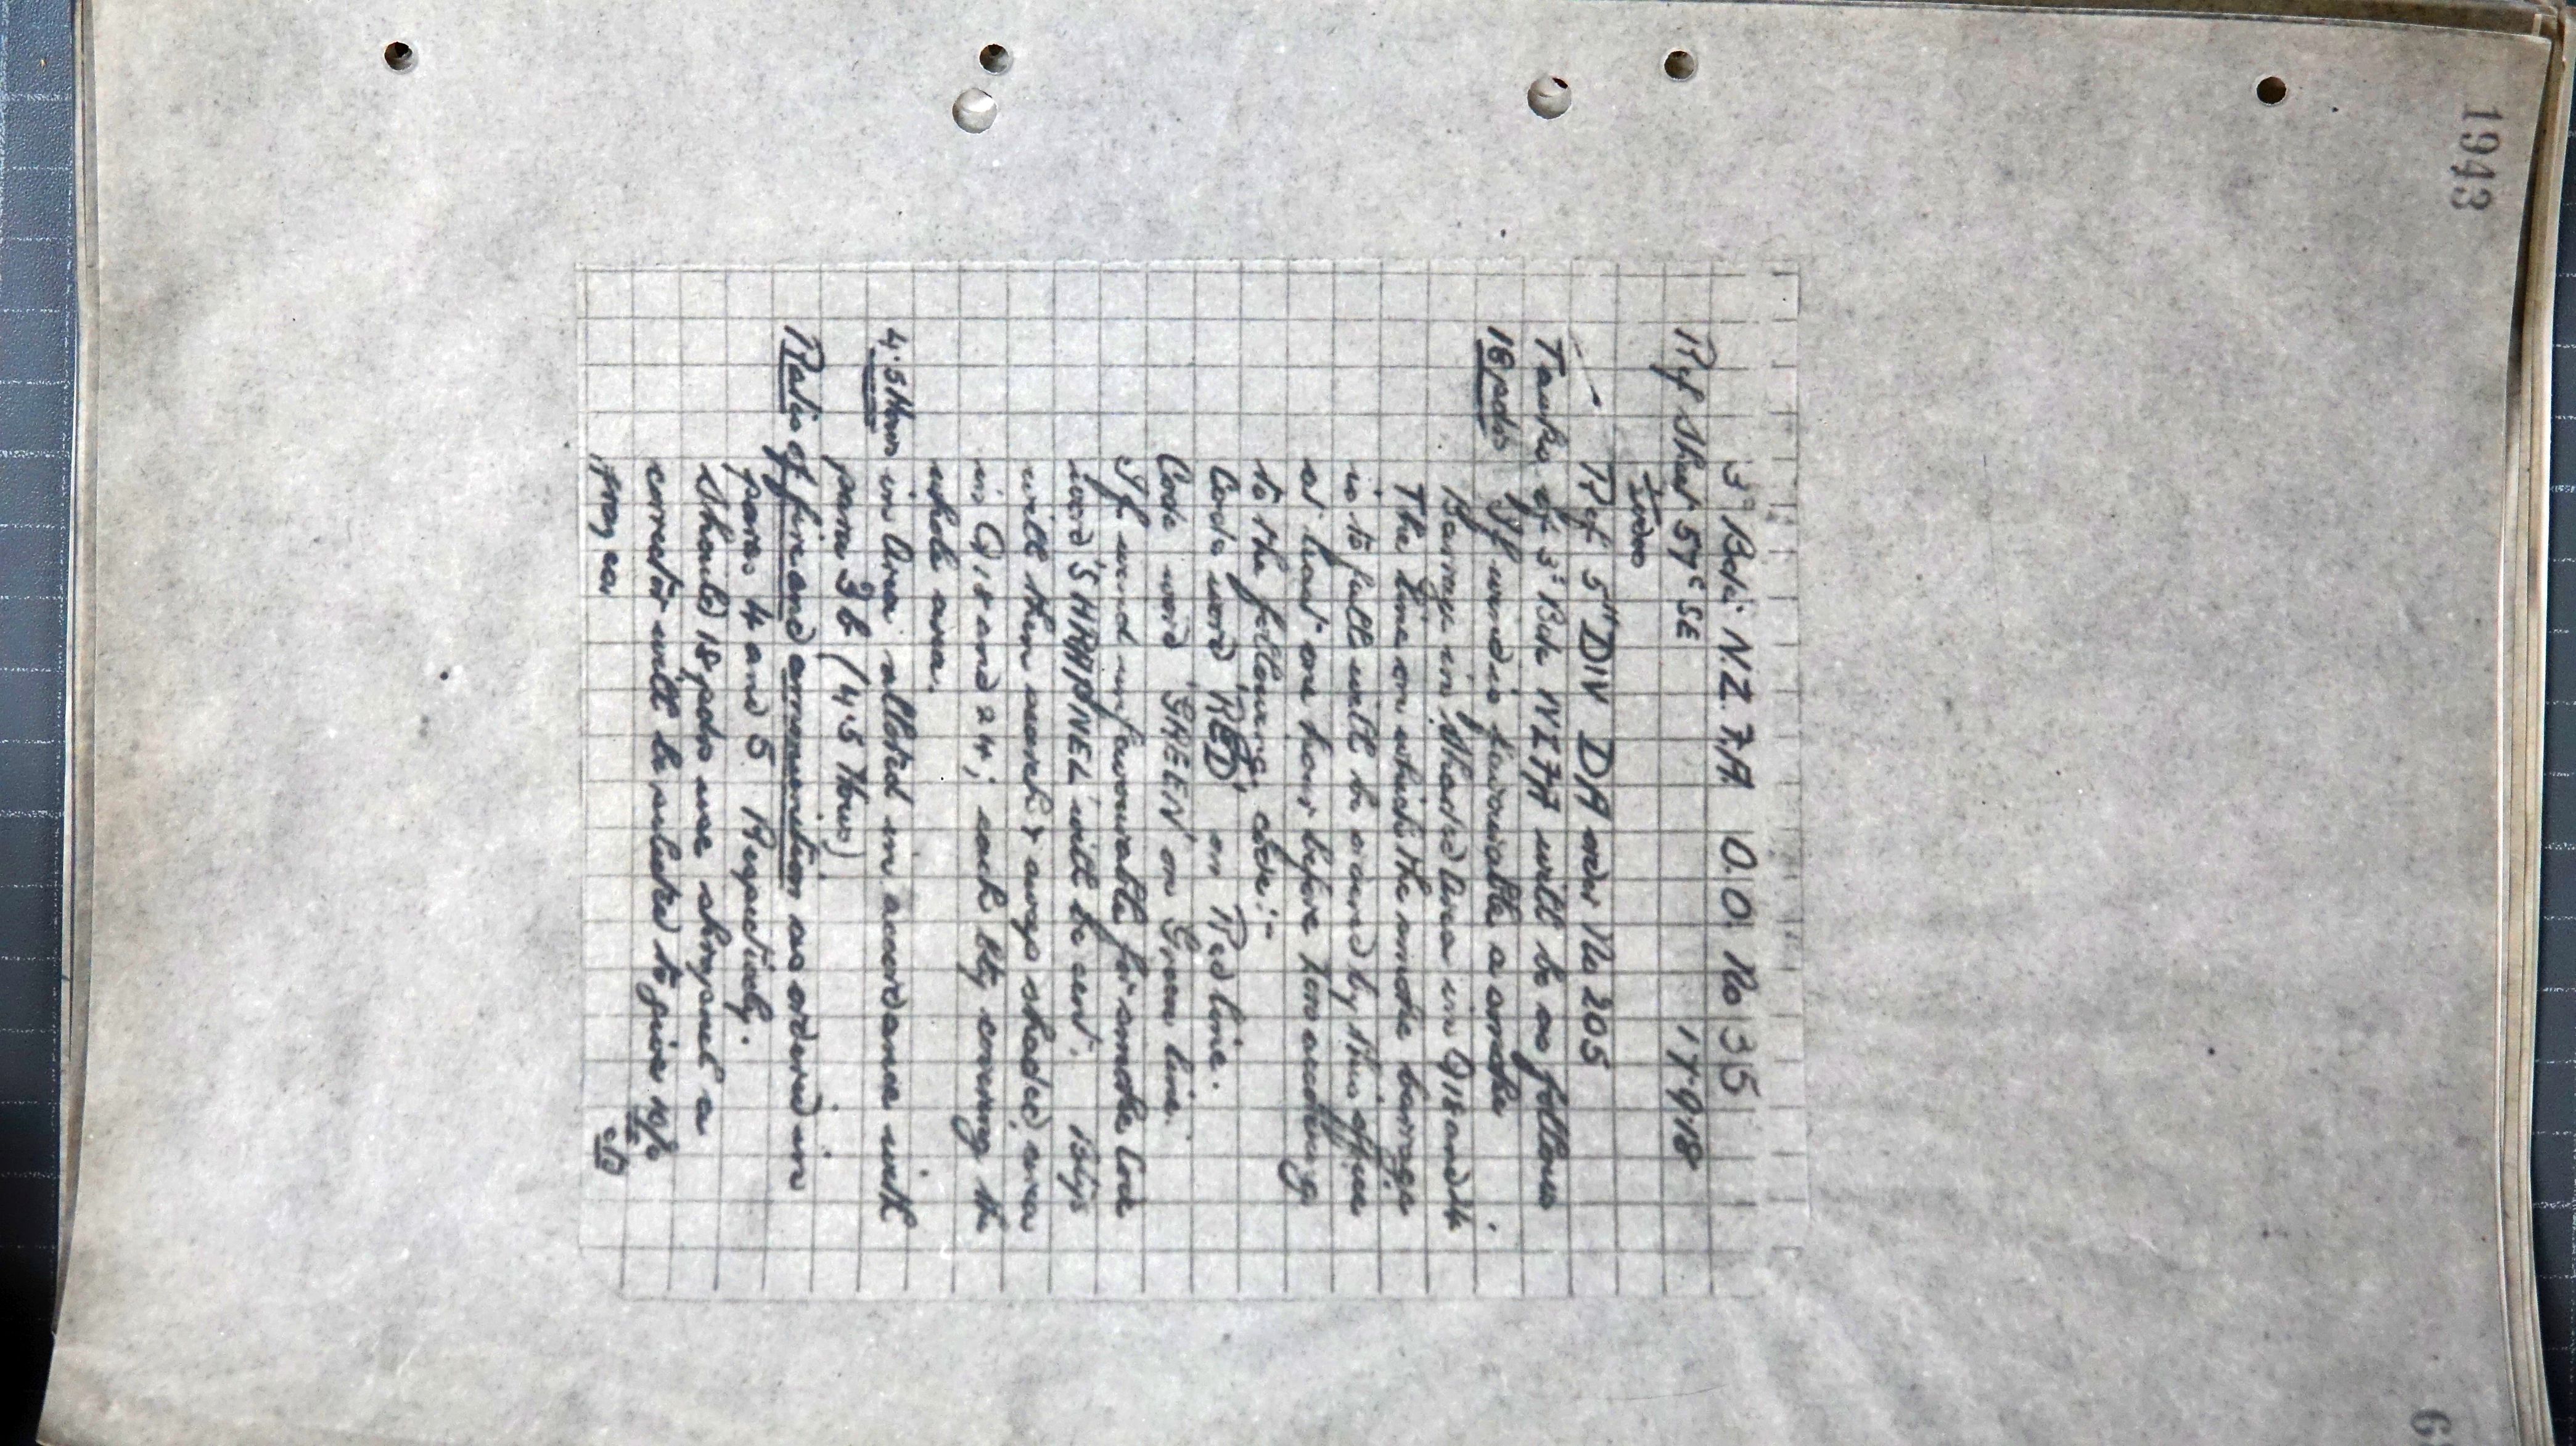 1943
3rd Bde N.Z.F.A O.O. No 35
Ref Sheet 57c SE 17-9-18
1/20000
Ref 5th DIV DA order No 205
Tasks of 3rd Bde NZFA will be as follows
18 pdrs If wind is favourable a smoke
Barrage in shaded area in Q18 and 24.
The line on which the smoke barrage
is to fall will be wired by this office
at least one hour before hour according
to the following code:-
Code word 'RED' on Red line.
Code word 'GREEN' on Green line.
If wind unfavourable for smoke code
word 'SHRAPNEL' will be sent. Btys
will then search & sweep shaded area
in Q18 and 24; each bty covering the
whole area.
4.5 Hows in area allotted in accordance with
para 3b (4.5 Hows)
Ratio of fire and ammunition as ordered in
paras 4 and 5 Respectively.
Should 18 pdrs use shrapnel a
corrector will be selected to give 10%
6